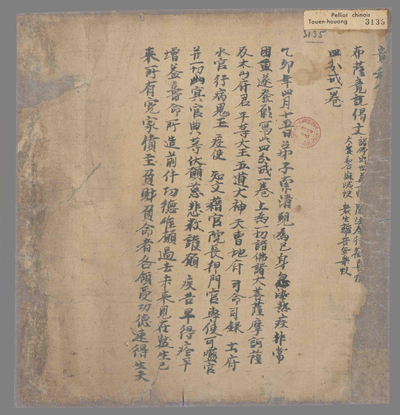 Pelliot chinois
Touen-houang 3135
3135
布薩竟說偈文 諸佛出世第一快 聞法奉行安隱快
大眾和合寂滅快 眾生離苦安樂快
四分戒一卷
乙卯年四月十五日弟子索清兒為己身忽染熱疾非常
困重遂發願寫此四分戒一卷上為一切諸佛諸大菩薩摩訶薩
及太山府君平等大王五道大神天曹地府司命司錄土府
水官行病鬼王疫使知文籍官院長押門官專使可官
并一切幽冥官典等伏願慈悲救護願疾苦早得痊平
增益壽命所造前件功德唯願過去未來見在數生已
來所有冤家債主負財負命者各領受功德速得生天